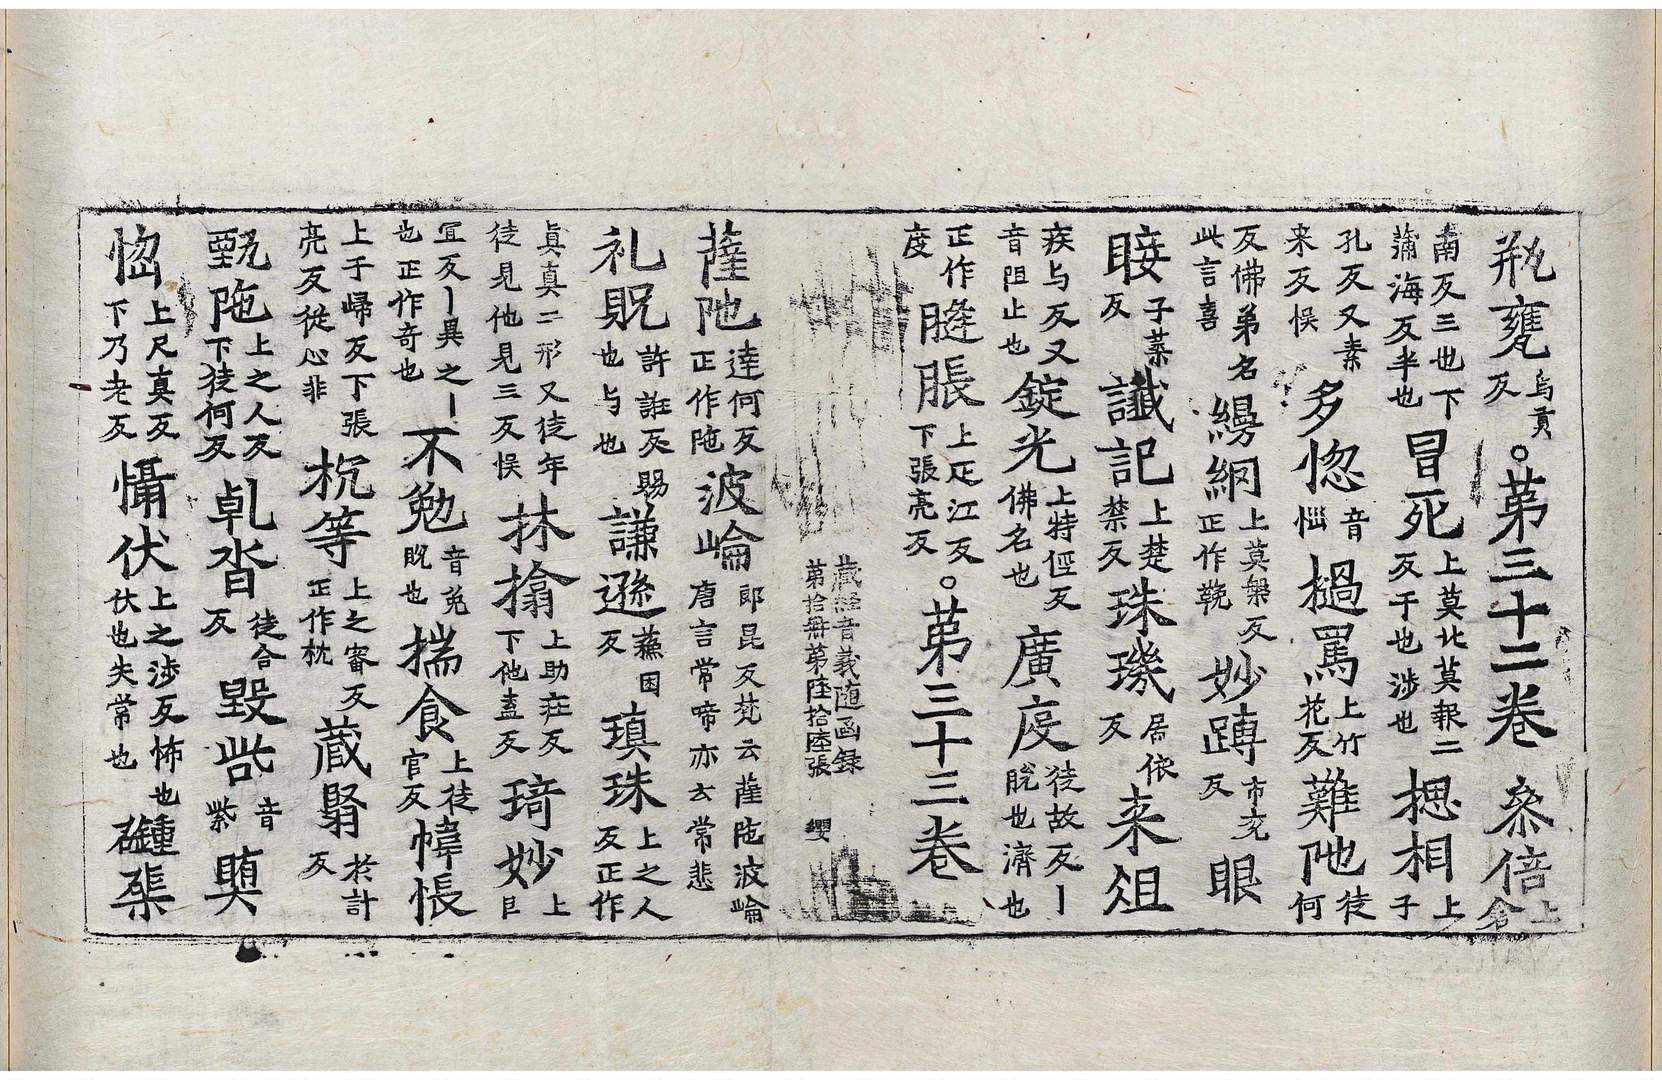 瓨甕烏貢反。第三十二卷 叅倍上倉
南反三也下蒲海反半也冒死上莫北莫報二反干也涉也揌相上子
孔反又素来反悮多惚音惱撾罵上竹花反難阤徒何
反佛弟名此言喜縵網上莫槃反正作鞔妙䏝市兖反眼
睫子葉反讖記上楚禁反珠璣居依反来俎
疾与反又音阻止也錠光上特徑反佛名也廣度徒故反丨脫也濟也
正作度膖脹上疋江反下張亮反。第三十三卷
藏經音義随函録
第拾冊第陸拾陸張 纓
薩阤達何反正作陁波崘郎昆反梵云薩陁波崘唐言常啼亦云常悲
礼貺許誑反賜也与也謙遜蘓困反瑱珠上之人反正作
眞真二形又徒年徒見他見三反悮牀搨上助庄反下他盍反琦妙上巨
宜反丨異之丨也正作奇也不勉音免脫也揣食上徒官反幃悵
上于歸反下張亮反從心非桄等上之審反正作枕蔵翳於計反
甄陁上之人反下徒何反卓沓徒合反毀呰音紫瞋
惱上尺真反下乃老反懾伏上之涉反怖也伏也失常也渠